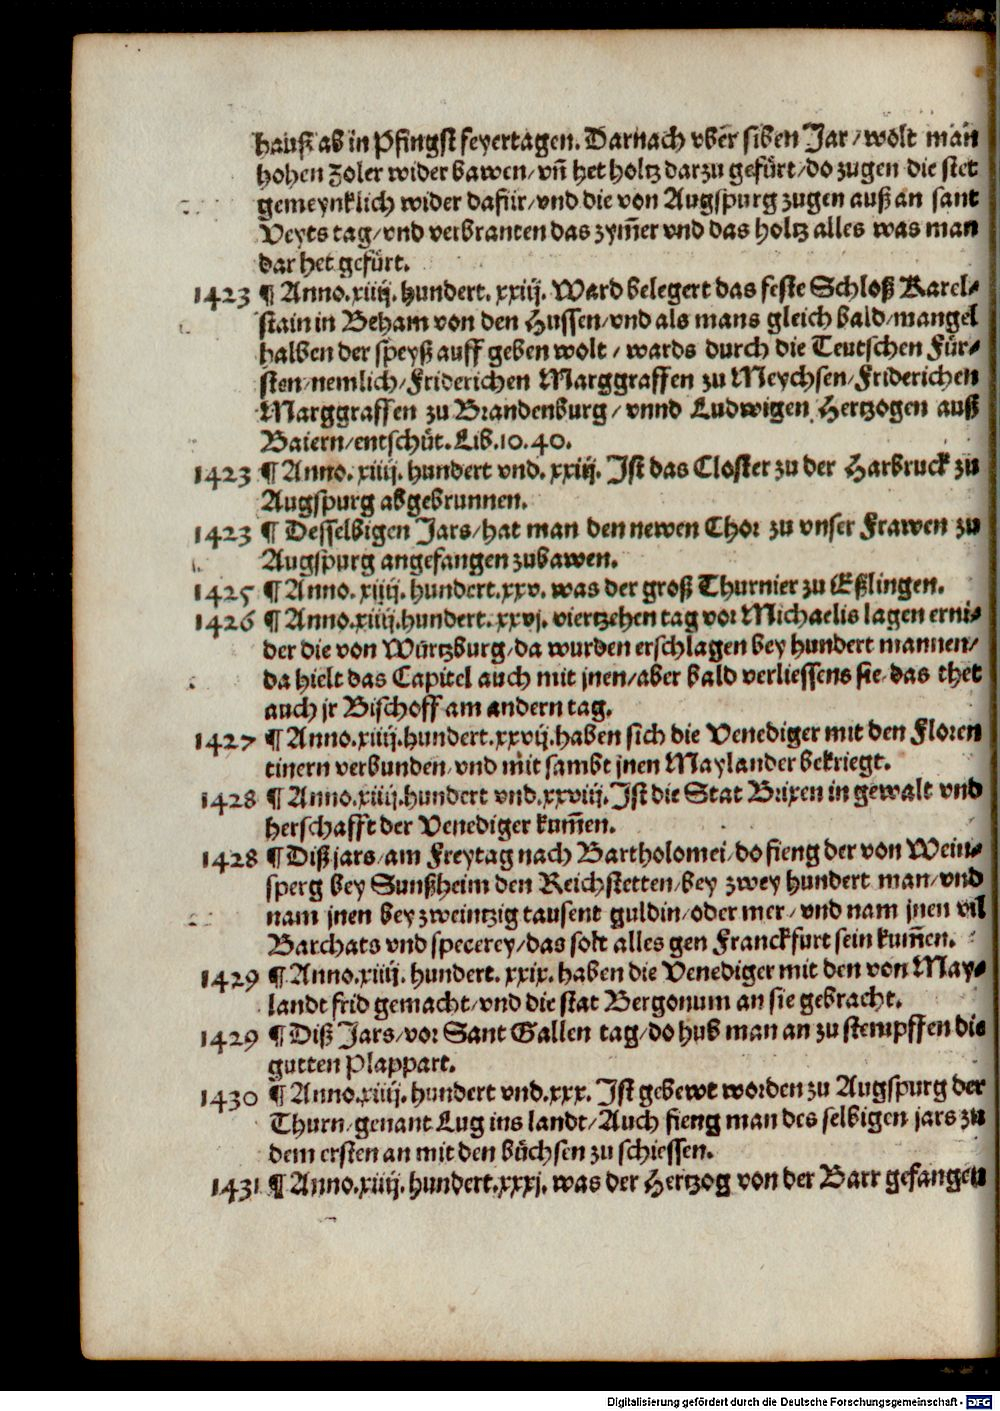 hauß ab in Pfingst feyertagen. Darnach vber siben Jar / wolt man
hohen Zoler wider bawen / vñ het holtz darzu gefürt / do zugen die stet
gemeynklich wider dafür / vnd die von Augspurg zugen auß an sant
Veyts tag / vnd verbranten das zym̃er vnd das holtz alles was man
dar het gefürt.
1423 ¶ Anno. xiiij. hundert. xxiij. Ward belegert das feste Schloß Karel⸗
stain in Beham von den Hussen / vnd als mans gleich bald / mangel
halben der speyß auff geben wolt / wards durch die Teutschen Für⸗
sten / nemlich / Friderichen Marggraffen zu Meychsen / Friderichen
Marggraffen zu Brandenburg / vnnd Ludwigen Hertzogen auß
Baiern / entschüt. Lib. 10. 40.
1423 ¶ Anno. xiiij. hundert vnd. xxiij. Jst das Closter zu der Harbruck zu
Augspurg abgebrunnen.
1423 ¶ Desselbigen Jars / hat man den newen Chor zu vnser Frawen zu
Augspurg angefangen zubawen.
1425 ¶ Anno. xiiij. hundert. xxv. was der groß Thurnier zu Eßlingen.
1426 ¶ Anno. xiiij. hundert. xxvj. viertzehen tag vor Michaelis lagen erni⸗
der die von Würtzburg / da wurden erschlagen bey hundert mannen /
da hielt das Capitel auch mit jnen / aber bald verliessens sie / das thet
auch jr Bischoff am andern tag.
1427 ¶ Anno. xiiij. hundert. xxvij. haben sich die Venediger mit den Floren
tinern verbunden / vnd mit sambt jnen Maylander bekriegt.
1428 ¶ Anno. xiiij. hundert vnd. xxviij. Jst die Stat Brixen in gewalt vnd
herschafft der Venediger kum̃en.
1428 ¶ Diß jars / am Freytag nach Bartholomei / do fieng der von Wein⸗
sperg bey Sunßheim den Reichstetten / bey zwey hundert man / vnd
nam jnen bey zweintzig tausent guldin / oder mer / vnd nam jnen vil
Barchats vnd specerey / das solt alles gen Franckfurt sein kum̃en.
1429 ¶ Anno. xiiij. hundert. xxix. haben die Venediger mit den von May⸗
landt frid gemacht / vnd die stat Bergonum an sie gebracht.
1429 ¶ Diß Jars / vor Sant Gallen tag / do hub man an zu stempffen die
gutten Plappart.
1430 ¶ Anno. xiiij. hundert vnd. xxx. Jst gebewt worden zu Augspurg der
Thurn / genant Lug ins landt / Auch fieng man des selbigen jars zu
dem ersten an mit den büchsen zu schiessen.
1431 ¶ Anno. xiiij. hundert. xxxj. was der Hertzog von der Barr gefangen
Digitalisierung gefördert durch die Deutsche Forschungsgemeinschaft - DFG